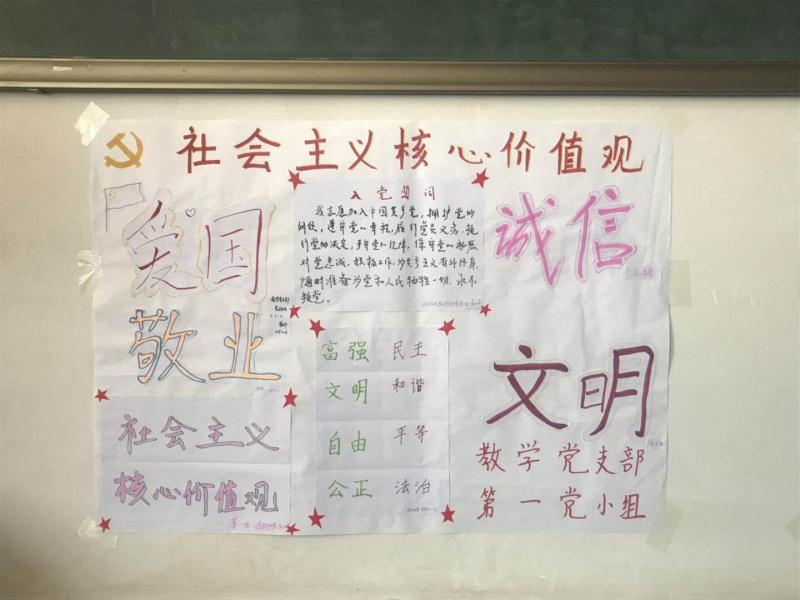 社会主义核心价值观
爱国
敬业
社会主义
核心价值观
入党誓词
我志愿加入中国共产党，拥护党的
纲领，遵守党的章程，履行党员义务，执
行党的决定，严守党的纪律，保守党的秘密
对党忠诚，积极工作，为共产主义奋斗终身
随时准备为党和人民牺牲一切，永不
叛党。
富强 民主
文明 和谐
自由 平等
公正 法治
诚信
文明
教学党支部
第一党小组